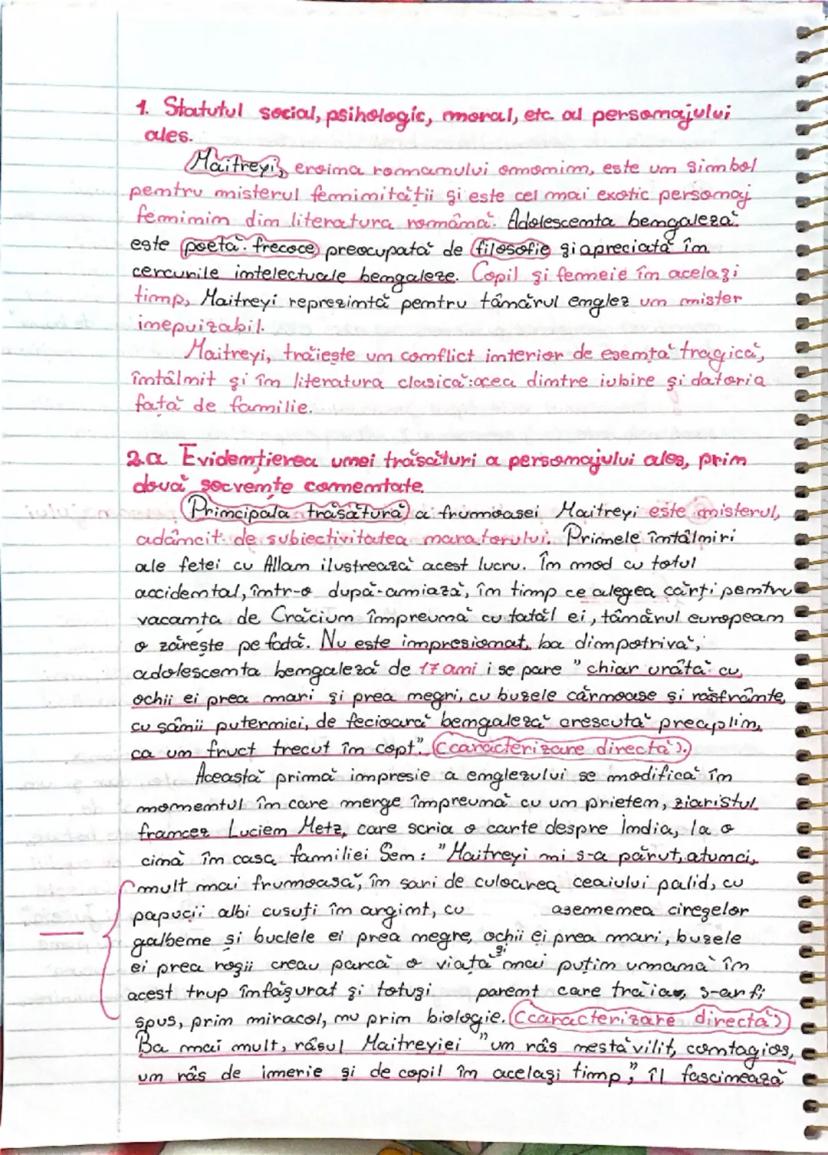 1. Statutul social, psihologic, moral, etc. al personajului
ales.
Maitreyi, eroina romanului omonim, este un simbol
pentru misterul feminității și este cel mai exotic personaj
feminin din literatura română. Adolescenta bengaleză
este poetă frecoce preocupată de filosofie și apreciată în
cercurile intelectuale bengaleze. Copil și femeie în același
timp, Maitreyi reprezintă pentru tânărul englez un mister
inepuizabil.
Maitreyi, trăiește un conflict interior de esență tragică,
întâlnit și în literatura clasică: acea dintre iubire și datoria
față de familie.
2.a Evidențierea unei trăsături a personajului ales, prin
două secvențe comentate.
Principala trăsătură a frumoasei Maitreyi este misterul,
adâncit de subiectivitatea naratorului. Primele întâlniri
ale fetei cu Allan ilustrează acest lucru. În mod cu totul
accidental, într-o după-amiază, în timp ce alegea cărți pentru
vacanța de Crăciun împreună cu tatăl ei, tânărul european
o zărește pe fată. Nu este impresionat, ba dimpotrivă,
adolescenta bengaleză de 17 ani i se pare "chiar urâtă cu
ochii ei prea mari și prea negri, cu buzele cărnoase și răsfrânte,
cu sânii puternici, de fecioară bengaleză crescută prea plin,
ca un fruct trecut în copt". (caracterizare directă).
Această primă impresie a englezului se modifică în
momentul în care merge împreună cu un prieten, ziaristul
francez Lucien Metz, care scria o carte despre India, la o
cină în casa familiei Sen: "Maitreyi mi s-a părut, atunci,
mult mai frumoasă, în sari de culoarea ceaiului palid, cu
papucii albi cusuți în argint, cu asemenea cireșelor
galbene și buclele ei prea negre, ochii ei prea mari, buzele
ei prea roșii creau parcă o viață și mai puțin umană în
acest trup înfășurat și totuși parent care trăia, s-ar fi
spus, prin miracol, nu prin biologie. (caracterizare directă)
Ba mai mult, râsul Maitreyiei "un râs nestăvilit, contagios,
un râs de inerie și de copil în același timp", îl fascinează